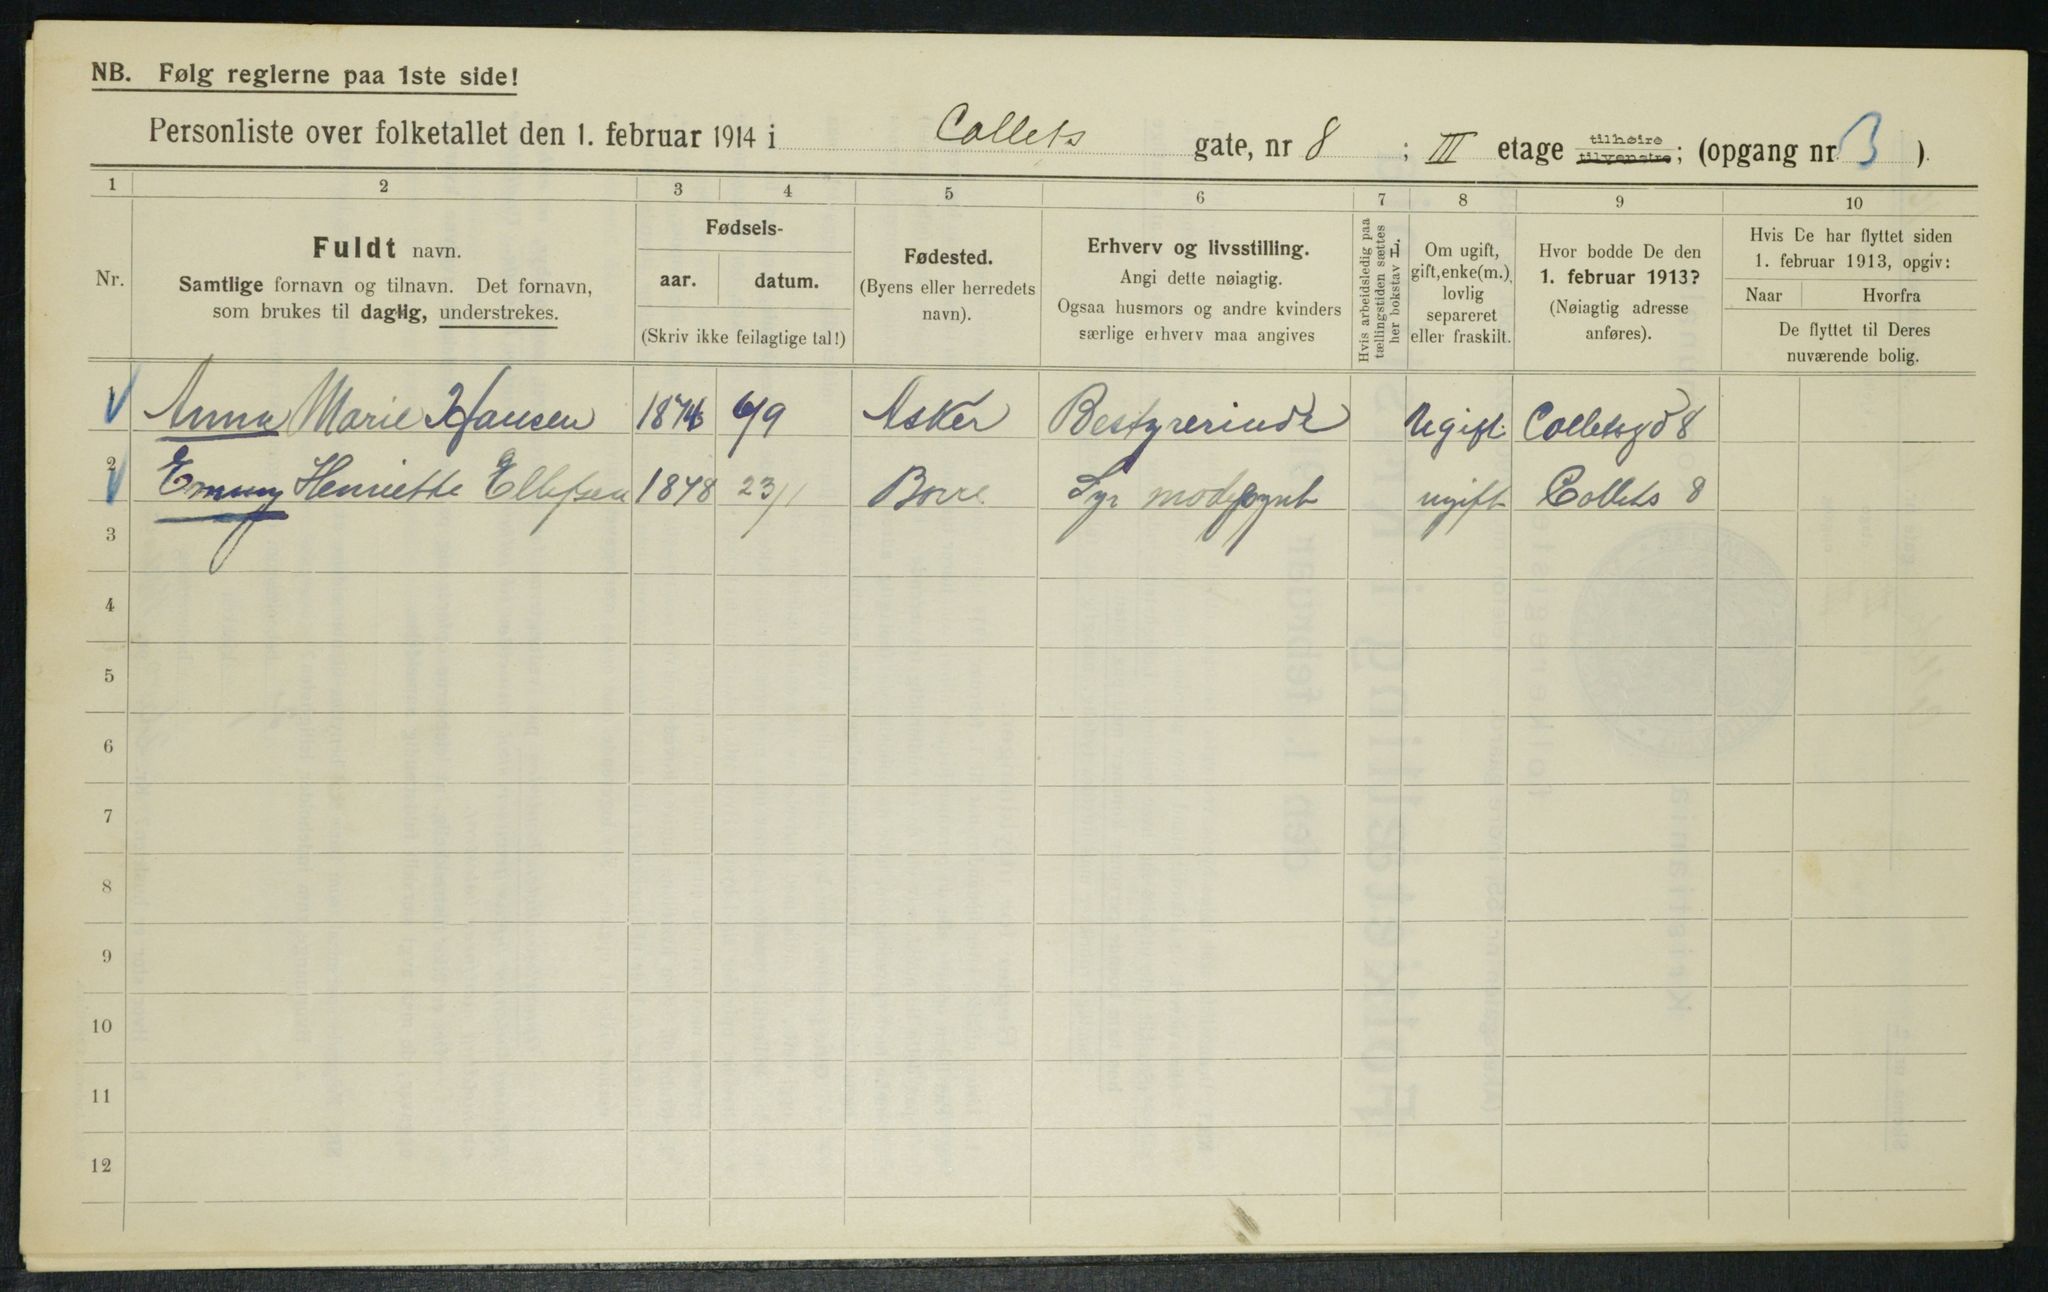 NB. Følg reglerne paa 1ste side!
Personliste over folketallet den 1. februar 1914 i Collets gate, nr 8 ; III etage tilhøire tilvenstre; (opgang nr. ).
1 2 3 4 5 6 7 8 9 10
Nr.
Fuldt navn.
Samtlige fornavn og tilnavn. Det fornavn,
som brukes til daglig, understrekes.
Fødsels-
aar. datum.
(Skriv ikke feilagtige tal!)
Fødested.
(Byens eller herredets
navn).
Erhverv og livsstilling.
Angi dette nøiagtig.
Ogsaa husmors og andre kvinders
særlige erhverv maa angives
Hvis arbeidsledig paa
tællingstiden sættes
her bokstav L.
Om ugift,
gift, enke(m.),
lovlig
separeret
eller fraskilt.
Hvor bodde De den
1. februar 1913?
(Nøiagtig adresse
anføres).
Hvis De har flyttet siden
1. februar 1913, opgiv:
Naar Hvorfra
De flyttet til Deres
nuværende bolig.
1 Anna Marie Hansen 1874 /9 Asker Bestyrerinde Ugift 8
2 Emmy Henriette Ellefsen 1878 23/1 Borre Syr ugift Collets 8
3
4
5
6
7
8
9
10
11
12